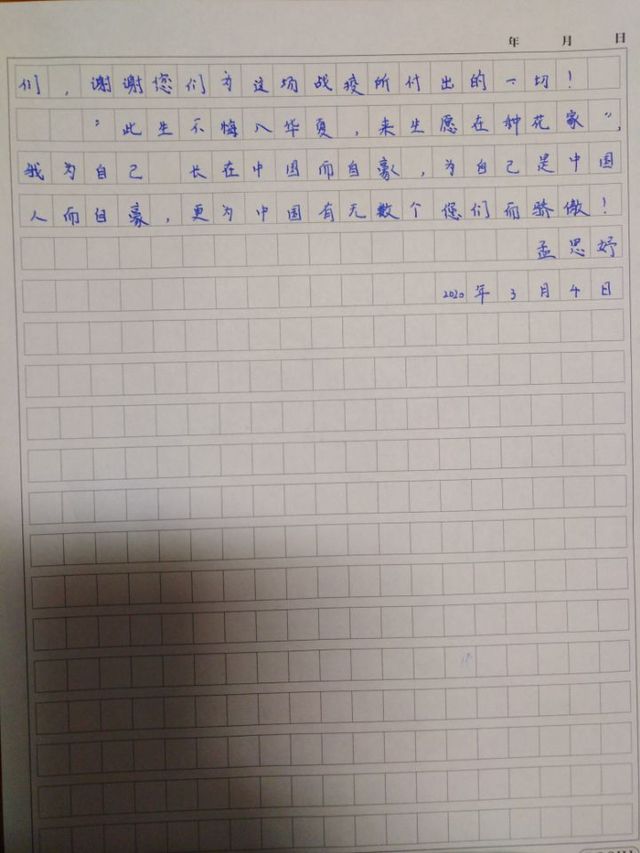 年 月 日
们，谢谢您们为这场战疫所付出的一切！
“此生不悔入华夏，来生愿在种花家”，
我为自己 长在中国而自豪，为自己是中国
人而自豪，更为中国有无数个您们而骄傲！
孟思妤
2020年3月4日